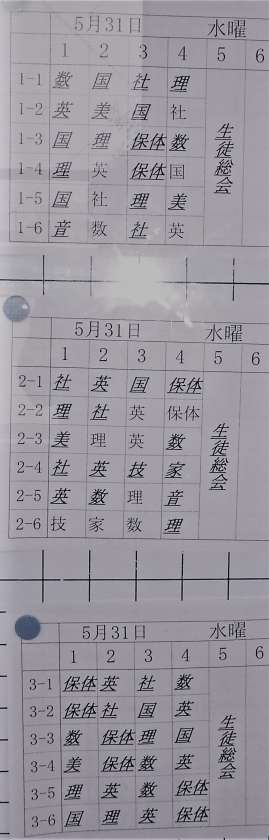 5月31日 水曜
1 2 3 4 5 6
1-1 数 国 社 理
1-2 英 美 国 社
1-3 国 理 保体 数
1-4 理 英 保体 国
1-5 国 社 理 美
1-6 音 数 社 英
生徒総会
5月31日 水曜
1 2 3 4 5 6
2-1 社 英 国 保体
2-2 理 社 英 保体
2-3 美 理 英 数
2-4 社 英 技 家
2-5 英 数 理 音
2-6 技 家 数 理
生徒総会
5月31日 水曜
1 2 3 4 5 6
3-1 保体 英 社 数
3-2 保体 社 国 英
3-3 数 保体 理 国
3-4 美 保体 数 英
3-5 理 英 数 保体
3-6 国 理 英 保体
生徒総会